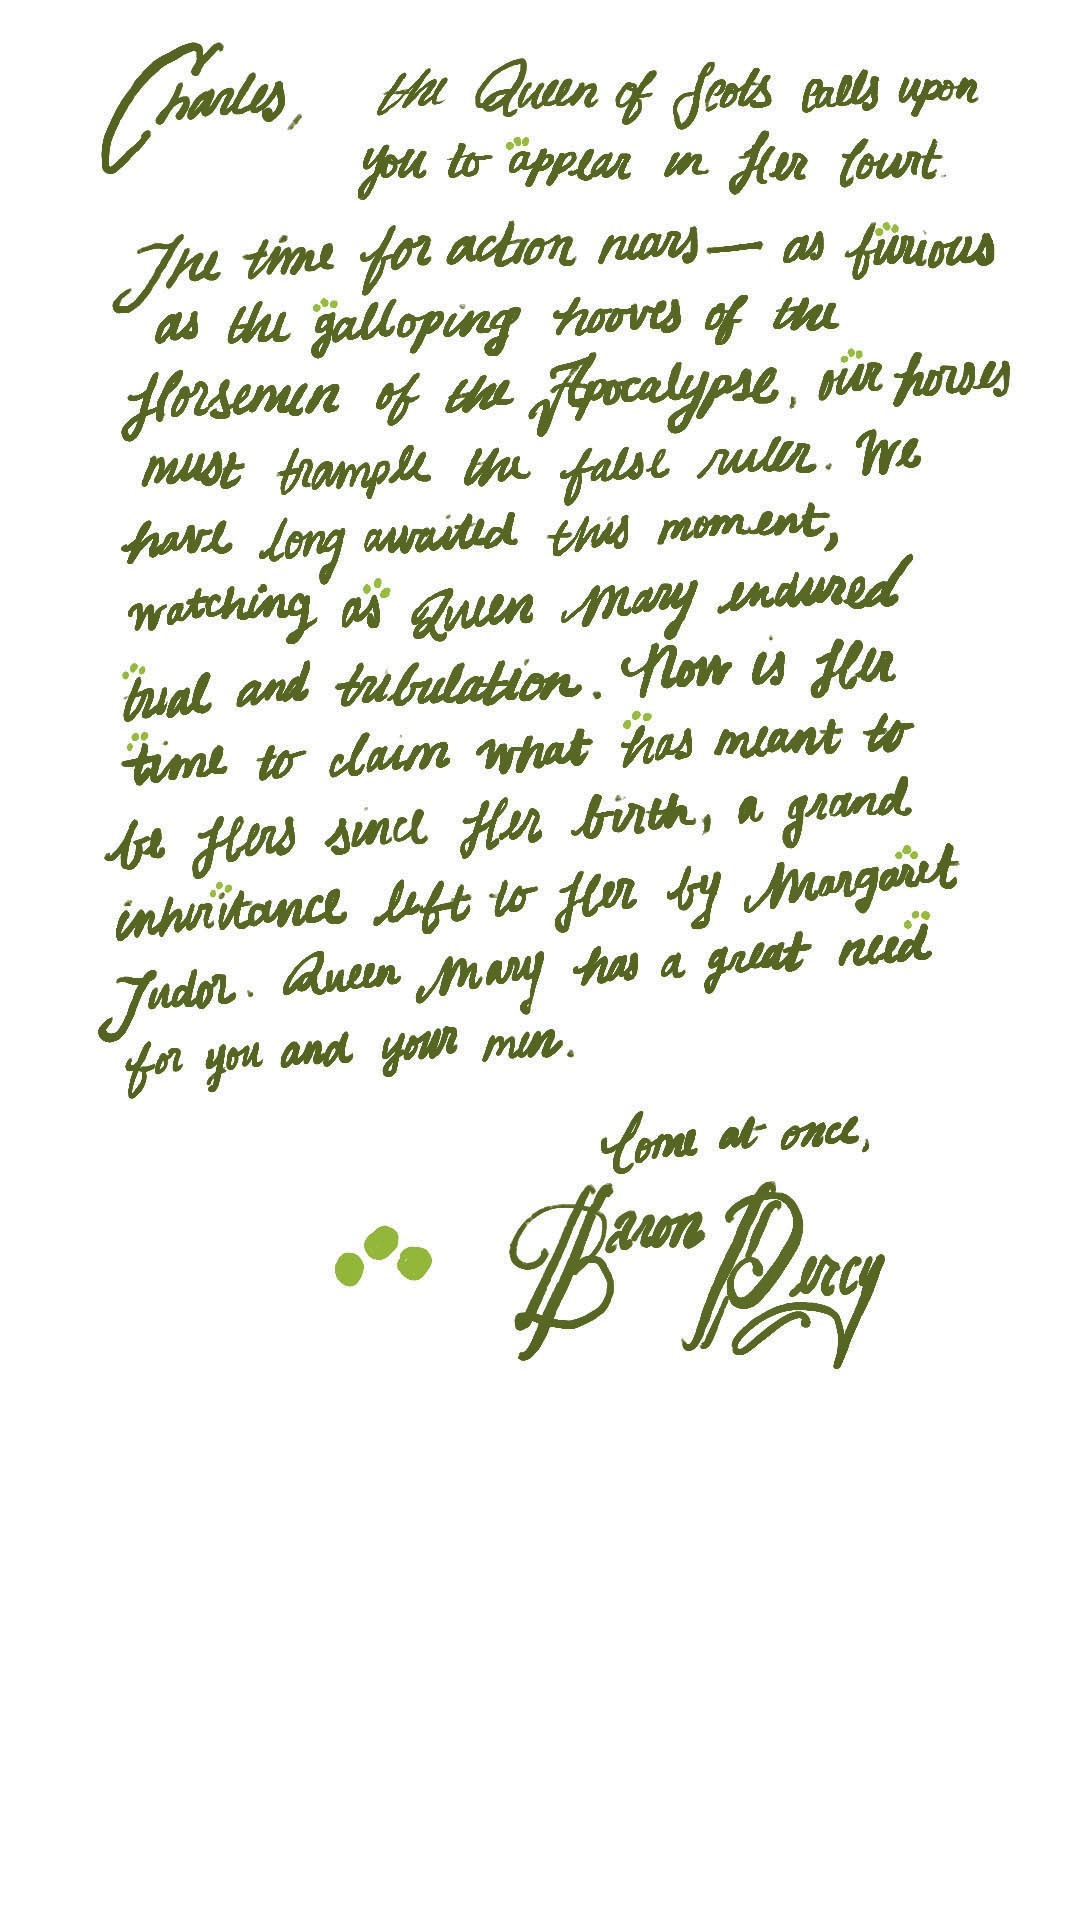 Charles, the Queen of Scots calls upon
you to appear in Her Court.
The time for action nears — as furious
as the galloping hooves of the
Horsemen of the Apocalypse, our horses
must trample the false ruler. We
have long awaited this moment,
watching as Queen Mary endured
trial and tribulation. Now is Her
time to claim what has meant to
be Hers since Her birth, a grand
inheritance left to Her by Margaret
Tudor. Queen Mary has a great need
for you and your men.
Come at once,
Baron Percy